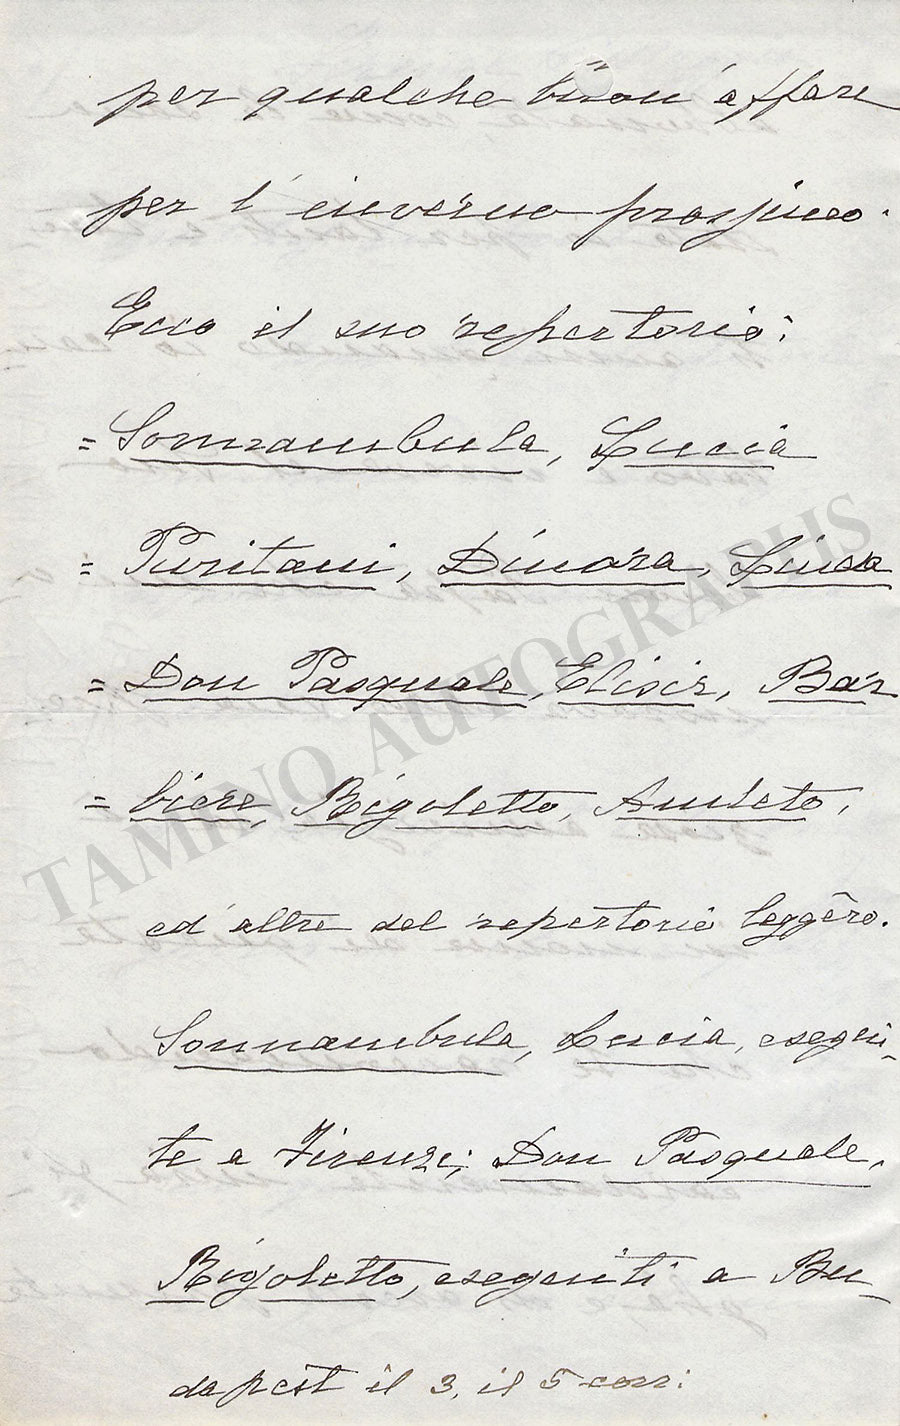 per qualche buon' affare
per l'inverno prossimo.
Ecco il suo repertorio:
= Sonnambula, Lucia
= Puritani, Dinora, Linda
= Don Pasquale, Elisir, Bar
= biere, Rigoletto, Amleto,
ed altre del repertorio leggèro.
Sonnambula, Lucia, esegui-
te a Firenze; Don Pasquale,
Rigoletto, eseguiti a Bu-
dapest il 3, il 5 corr:
TAMINO AUTOGRAPHS